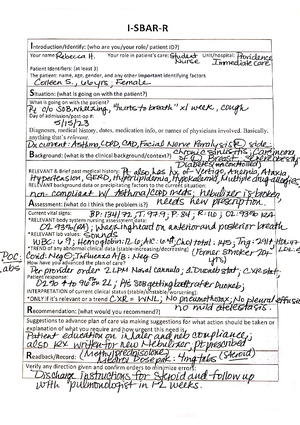 I-SBAR-R
Introduction/Identify: (who are you/your role/ patient ID?)
Your name Rebecca H. Your role in patient's care: Student Nurse Unit/hospital: Providence Immediate Care
Patient Identifiers: (at least 3)
The patient: name, age, gender, and any other important identifying factors
Colleen S., 66yrs, Female
Situation: (what is going on with the patient?)
What is going on with the patient?
Pt c/o SOB, wheezing, "hurts to breath" x1 week, cough
Day of admission/post-op #:
5/15/23
Diagnoses, medical history, dates, medication info, or names of physicians involved. Basically, anything that's relevant.
Dx current: Asthma, COPD, CAD, Facial Nerve Paralysis (R) side,
Background: (what is the clinical background/context?) Chronic sinusitis, Carcinoma of (L) Breast,
Diabetes (uncontrolled)
RELEVANT & Brief past medical history: Pt also has hx of Vertigo, Anemia, Ataxia,
Hypertension, GERD, Hyperlipidemia, Hypokalemia, Multiple drug allergies
RELEVANT background data or precipitating factors to the current situation:
non-compliant w/ Asthma/COPD meds, nebulizer is broken,
Assessment: (what do I think the problem is?) needs new prescription.
Current vital signs:
BP: 134/72, T: 97.9, P: 84, R: 18, O2: 93% RA
RELEVANT body system nursing assessment data:
O2 93% (RA), wheezes heard on anterior and posterior
*RELEVANT lab values: sounds
POC: Labs
WBC: Hemoglobin: A1C: Chol total:
*TREND of any abnormal clinical data (stable-increasing/decreasing):
Covid: Neg, Influenza A/B: Neg (Former smoker
How have you advanced the plan of care?
Per provider order 2 LPM Nasal cannula, 1 Duoneb start, CXR stat,
Patient response:
O2 to 96% on 2L, Pt's SOB getting better after Duoneb,
INTERPRETATION of current clinical status (stable/unstable/worsening):
*ONLY if it is relevant or a trend CXR = WNL, No pneumothorax, No pleural effusion
Recommendation: (what would you recommend?) no mild atelectasis.
Suggestions to advance plan of care via making suggestions for what action should be taken or explanation of what you require and how urgent the need is
Patient education on inhaler and neb compliance,
also RX written for new Nebulizer, pt prescribed
Readback/Record: (Methylprednisolone) Medrol Dosepak 4mg tabs (steroid)
Verify any direction given and confirm orders to minimize errors:
Discharge instructions for steroid and follow up
with pulmonologist in 1-2 weeks.